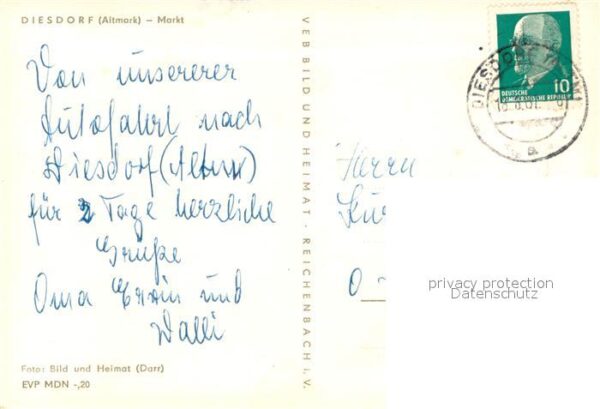 DIESDORF (Altmark) – Markt
Von unsererer
Autofahrt nach
Diesdorf (Altm)
für 2 Tage herzliche
Grüße
Oma Erwin und
Walli
Foto: Bild und Heimat (Darr)
EVP MDN -,20
VEB BILD UND HEIMAT · REICHENBACH i. V.
DEUTSCHE
DEMOKRATISCHE REPUBLIK
10
DIESDORF
a
Herrn
O
privacy protection
Datenschutz